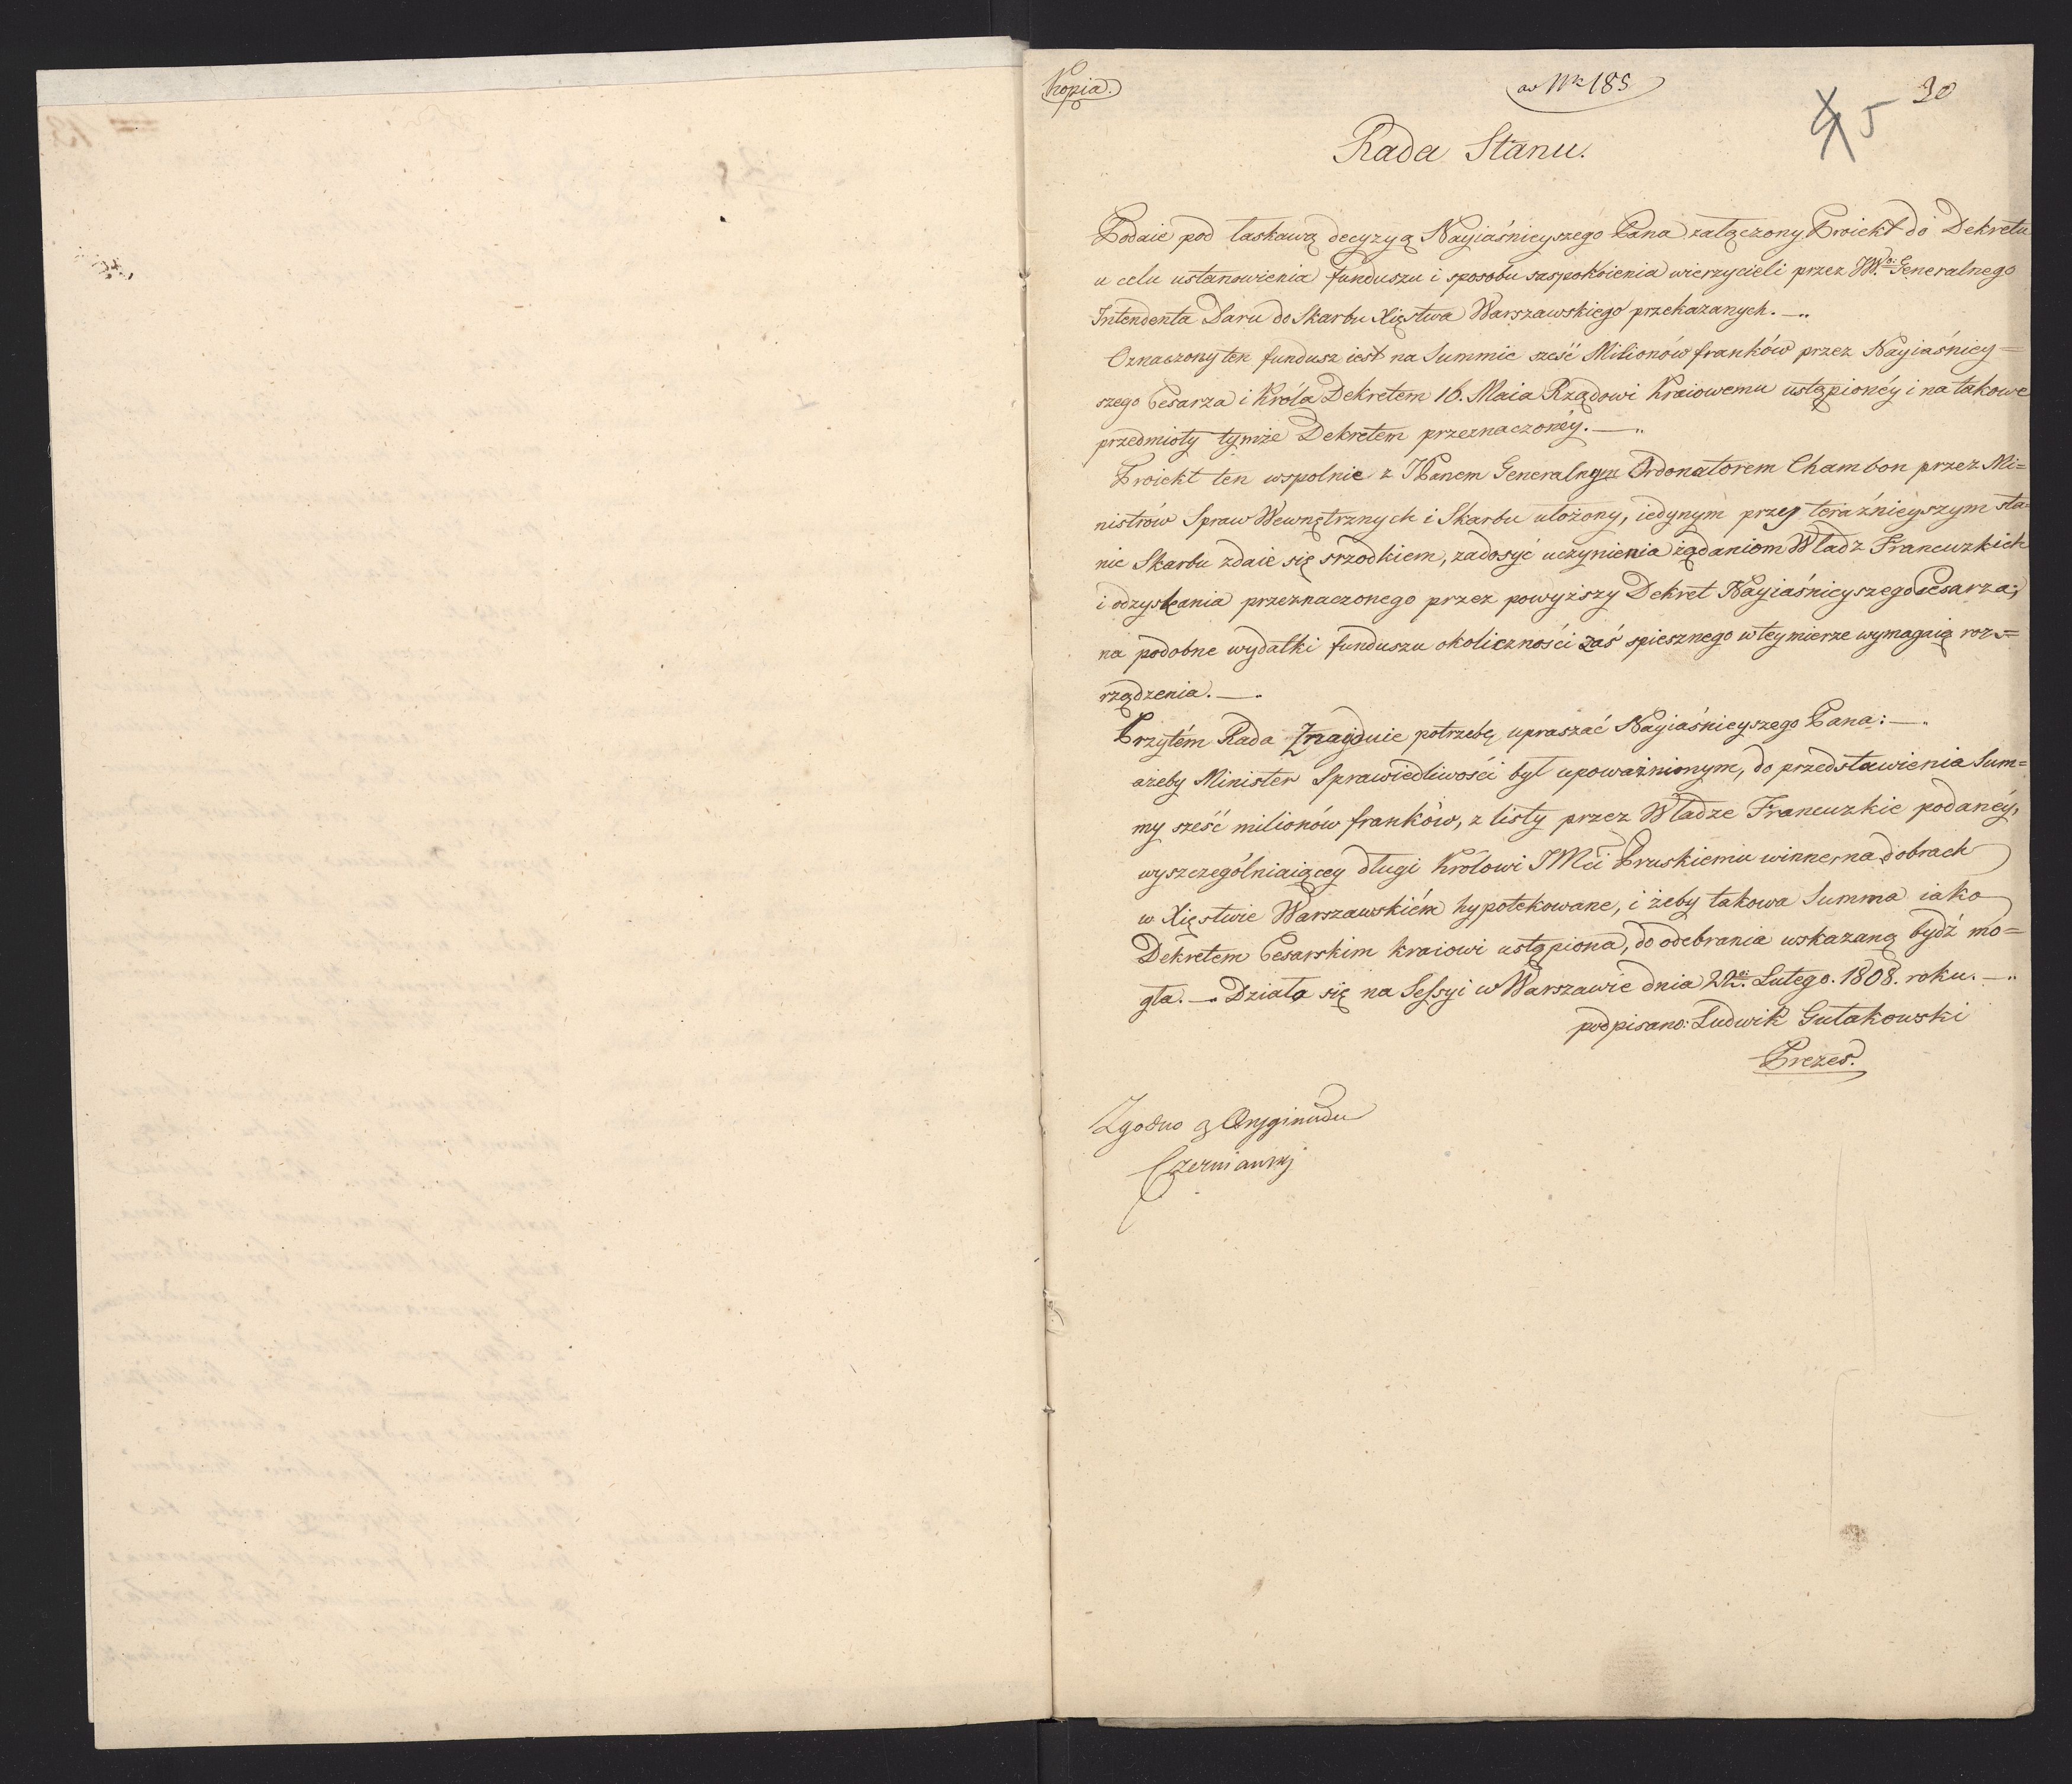 Kopia.
ad Nr 185
30
5
Rada Stanu.
Podaie pod łaskawą decyzyą Nayiaśnieyszego Pana załączony Proiekt do Dekretu
w celu ustanowienia funduszu i sposobu zaspokoienia wierzycieli przez JW.o Generalnego
Intendenta Daru do Skarbu Xięstwa Warszawskiego przekazanych. —..
Oznaczony ten fundusz iest na Summie sześć Milionów franków przez Nayiaśniey=
szego Cesarza i Króla Dekretem 16. Maia Rządowi Kraiowemu ustąpionéy i na takowe
przedmioty tymże Dekretem przeznaczonéy. —..
Proiekt ten wspolnie z JPanem Generalnym Ordonatorem Chambon przez Mi=
nistrów Spraw Wewnętrznych i Skarbu ułożony, iedynym przy teraźnieyszym sta=
nie Skarbu zdaie się srzodkiem, zadosyć uczynienia żądaniom Władz Francuzkich
i odzyskania przeznaczonego przez powyższy Dekret Nayiaśnieyszego Cesarza;
na podobne wydatki funduszu okoliczności zaś spiesznego w tey mierze wymagaią roz=
rządzenia. —.
Przytém Rada Znayduie potrzebę upraszać Nayiaśnieyszego Pana: —.
ażeby Minister Sprawiedliwości był upoważnionym, do przedstawienia Sum=
my sześć milionów franków, z listy przez Władze Francuzkie podanéy,
wyszczególniaiącey długi Królowi JMci Pruskiemu winne, na dobrach
w Xięstwie Warszawskiém hypotekowane, i żeby takowa Summa iako
Dekretem Cesarskim kraiowi ustąpiona, do odebrania wskazaną bydź mo=
gła. —. Działo się na Sessyi w Warszawie dnia 22ei. Lutego. 1808. roku. —..
podpisano: Ludwik Gutakowski
Prezes.
Zgodno z Oryginałem